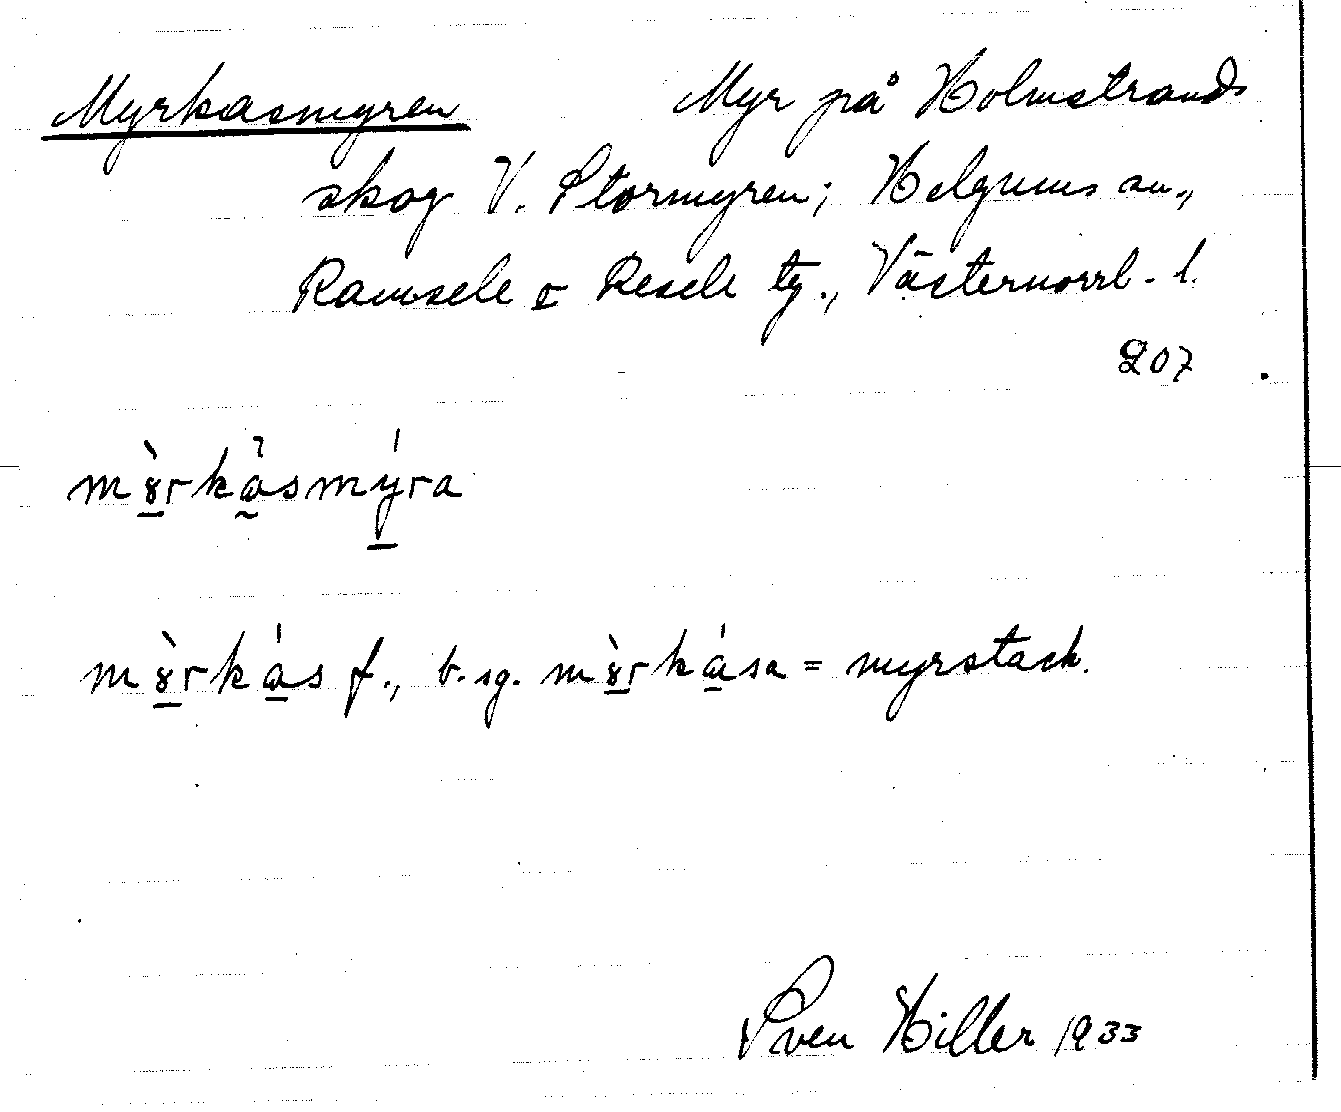 Myrkasmyren Myr på Holmstrands
skog V. Stormyren; Helgums sn.,
Ramsele o Resele tg., Västernorrl. l.
207
mỳrkåsmýra
mỳrkás f., b. sg. mỳrkása = myrstack.
Sven Hiller 1933